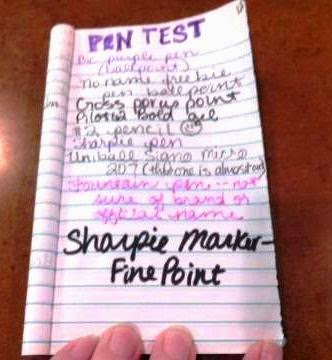 PEN TEST
Bic purple pen
(ballpoint)
no name freebie
pen ballpoint
Cross porus point
Pilot G2 Bold gel
#2 pencil
Sharpie pen
Uniball Signo Micro
207 (this one is almost
Fountain pen -- not
sure of brand or
official name
Sharpie Marker-
Fine Point